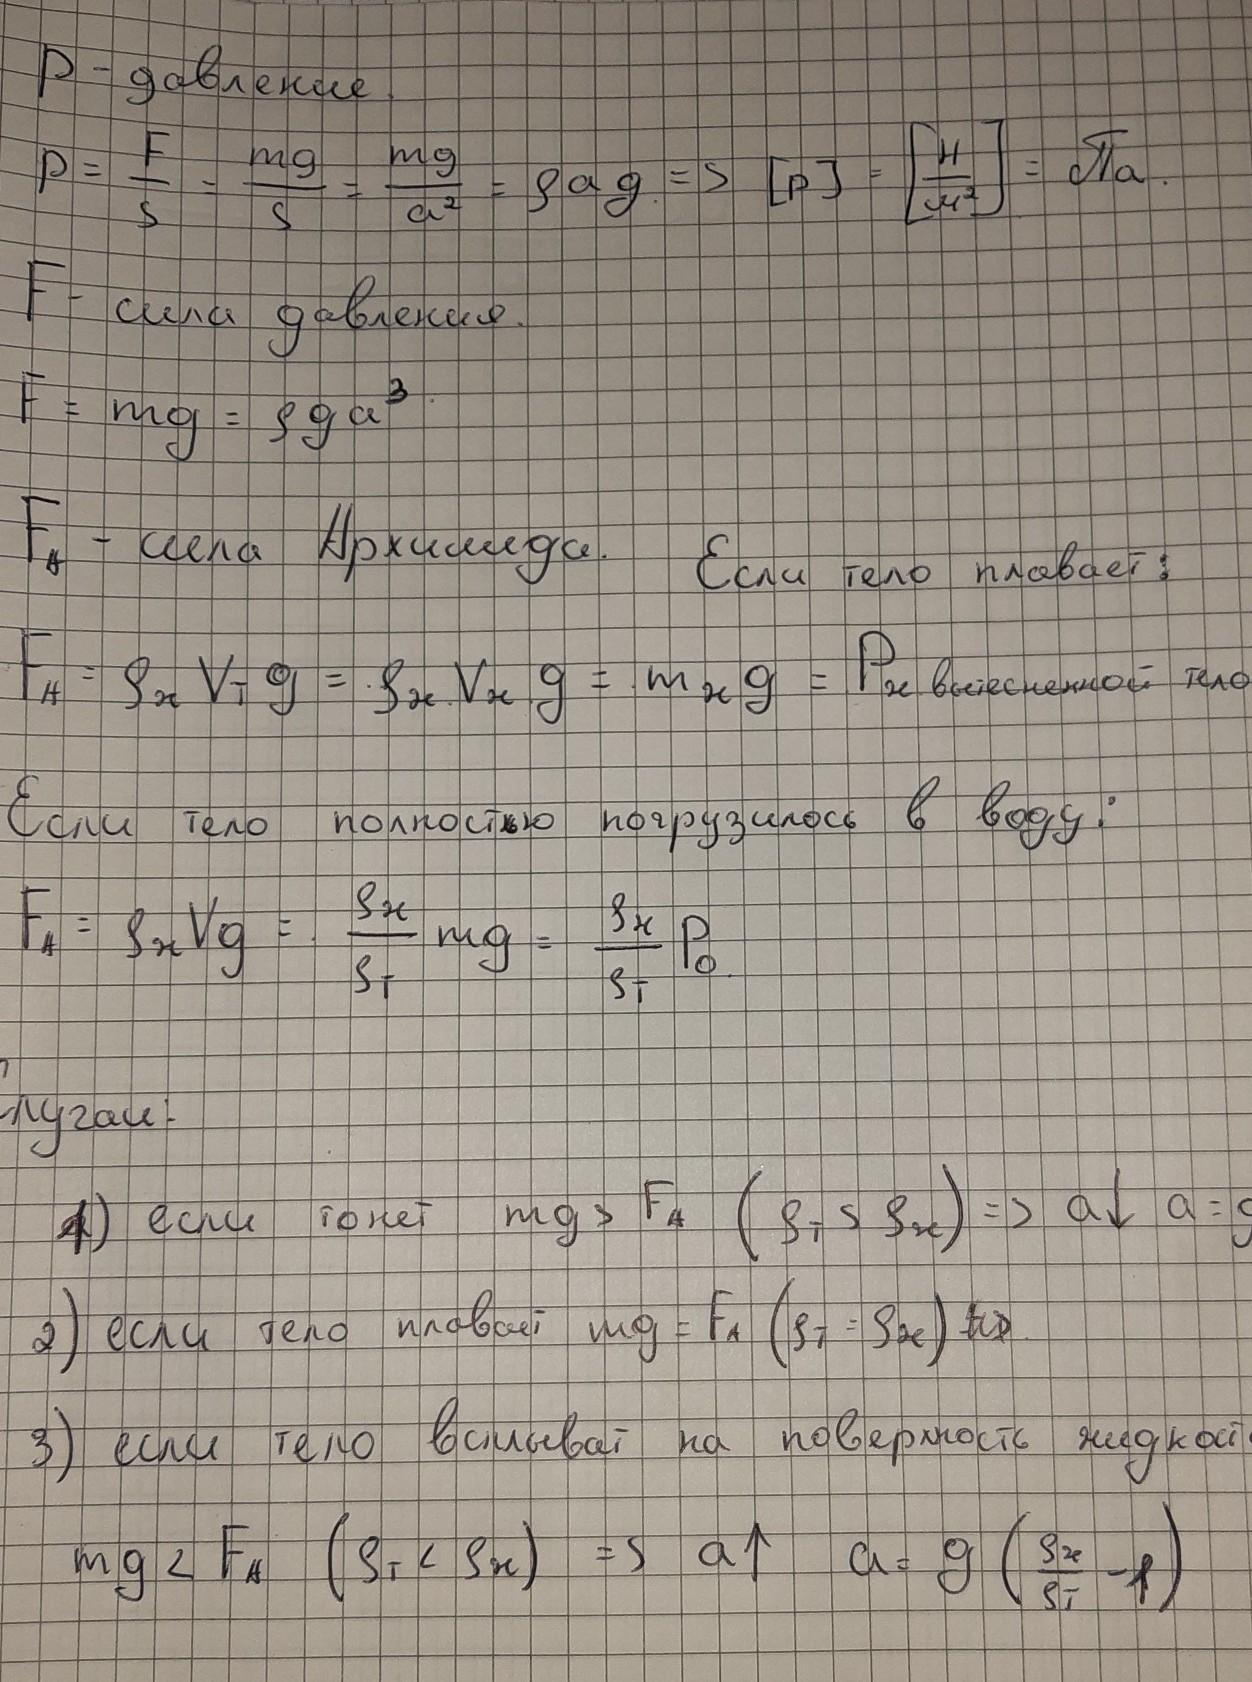 p - давление.
p = F/S = mg/S = mg/a² = ρag => [p] = [Н/м²] = Па.
F - сила давления.
F = mg = ρga³.
F_A - сила Архимеда. Если тело плавает:
F_A = ρ_ж V_т g = ρ_ж V_ж g = m_ж g = P_ж вытесненной тело
Если тело полностью погрузилось в воду:
F_A = ρ_ж Vg = ρ_ж/ρ_т mg = ρ_ж/ρ_т P_0.
случаи:
1) если тонет mg > F_A (ρ_т > ρ_ж) => a↓ a = g
2) если тело плавает mg = F_A (ρ_т = ρ_ж)
3) если тело всплывает на поверхность жидкост
mg < F_A (ρ_т < ρ_ж) => a↑ a = g (ρ_ж/ρ_т - 1)